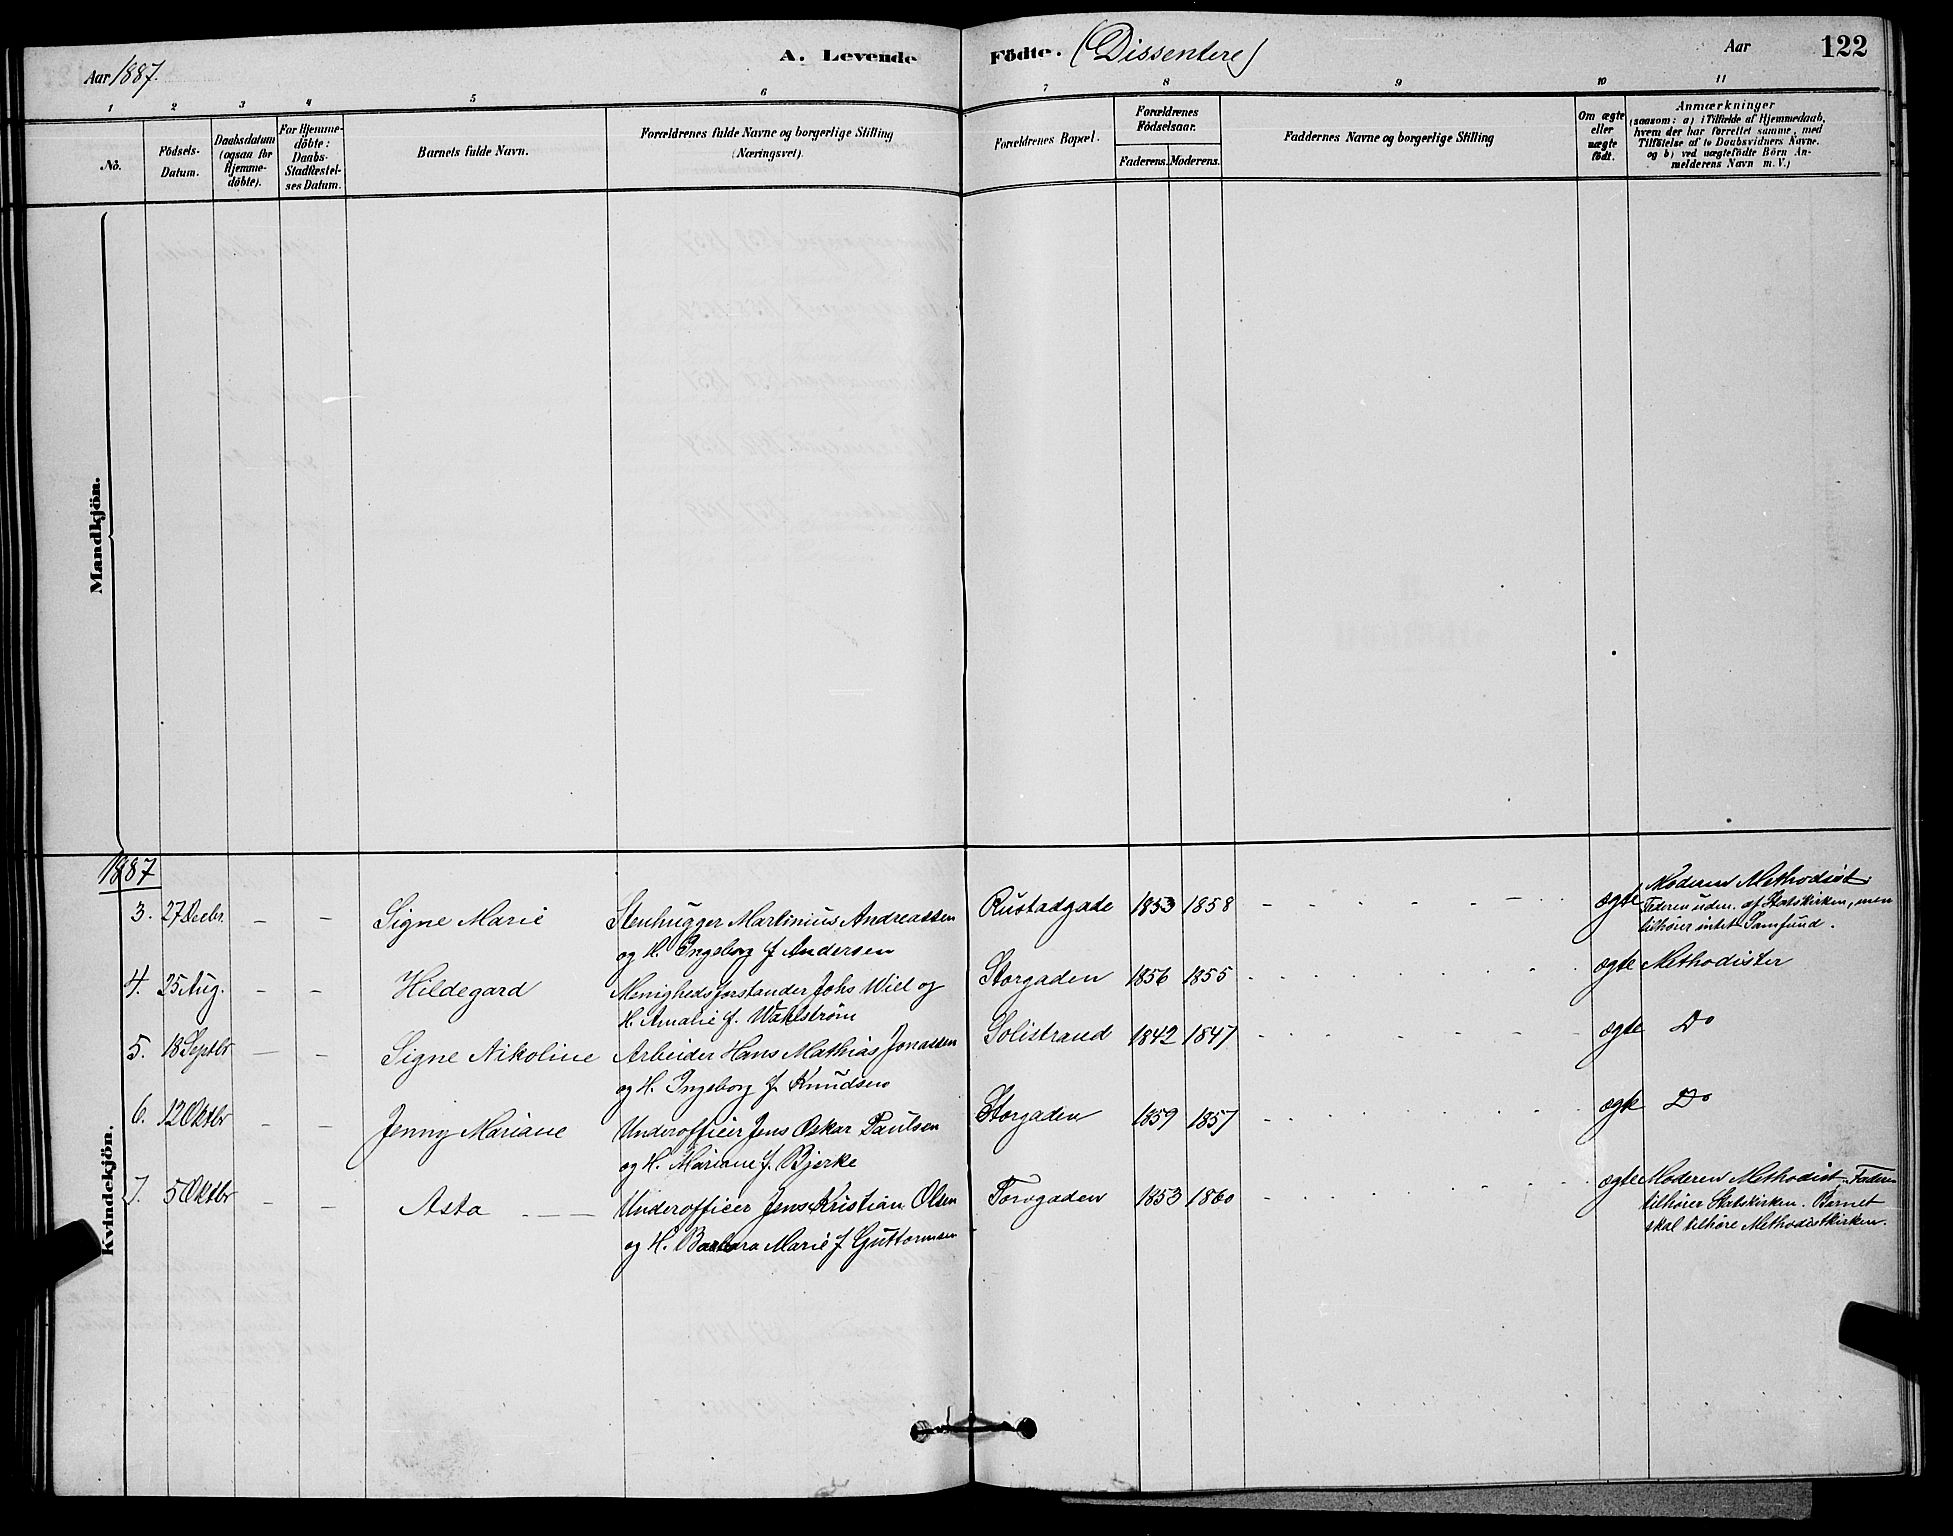 Aar 1887.
A. Levende Födte. (Dissentere)
Aar 122
1 2 3 4 5 6 7 8 9 10 11
No.
Födsels-Datum.
Daabsdatum (ogsaa for Hjemme-döbte).
For Hjemme-döbte: Daabs-Stadfestel-ses Datum.
Barnets fulde Navn.
Forældrenes fulde Navne og borgerlige Stilling
(Næringsvei).
Forældrenes Bopæl.
Forældrenes Födselsaar.
Faderens. Moderens.
Faddernes Navne og borgerlige Stilling
Om ægte eller uægte födt.
Anmærkninger
(saasom: a) i Tilfælde af Hjemmedaab,
hvem der har forrettet samme, med
Tilföielse af to Daabsvidners Navne.
og b) ved uægtefödte Börn An-
melderens Navn m. V.)
Mandkjön.
Kvindekjön.
1887
3. 27 Decbr. - - Signe Marie Stenhugger Martinius Andreassen Rustadgade 1853 1858 ægte Moderen Methodist.
og H. Ingeborg f Andersen Faderen uden. af Statskirken, men
tilhører intet Samfund.
4. 25 Aug. - - Hildegard Menighedsforstander Johs Wiel og Storgaden 1856 1855 ægte Methodister
H. Amalie f. Wahlstrøm
5. 18 Septbr - - Signe Nikoline Arbeider Hans Mathias Jonassen Solistrand 1842 1847 ægte Do
og H. Ingeborg f. Knudsen
6. 12 Oktbr - - Jenny Mariane Underofficer Jens Oskar Paulsen Storgaden 1859 1857 ægte Do
og H. Mariane f. Bjerke
7. 5 Oktbr - - Asta Underofficer Jens Kristian Olsen Torvgaden 1853 1860 ægte Moderen Methodist, Faderen
og H. Barbara Marie f Guttormsen tilhører Statskirken. Barnet
skal tilhøre Methodistkirken.